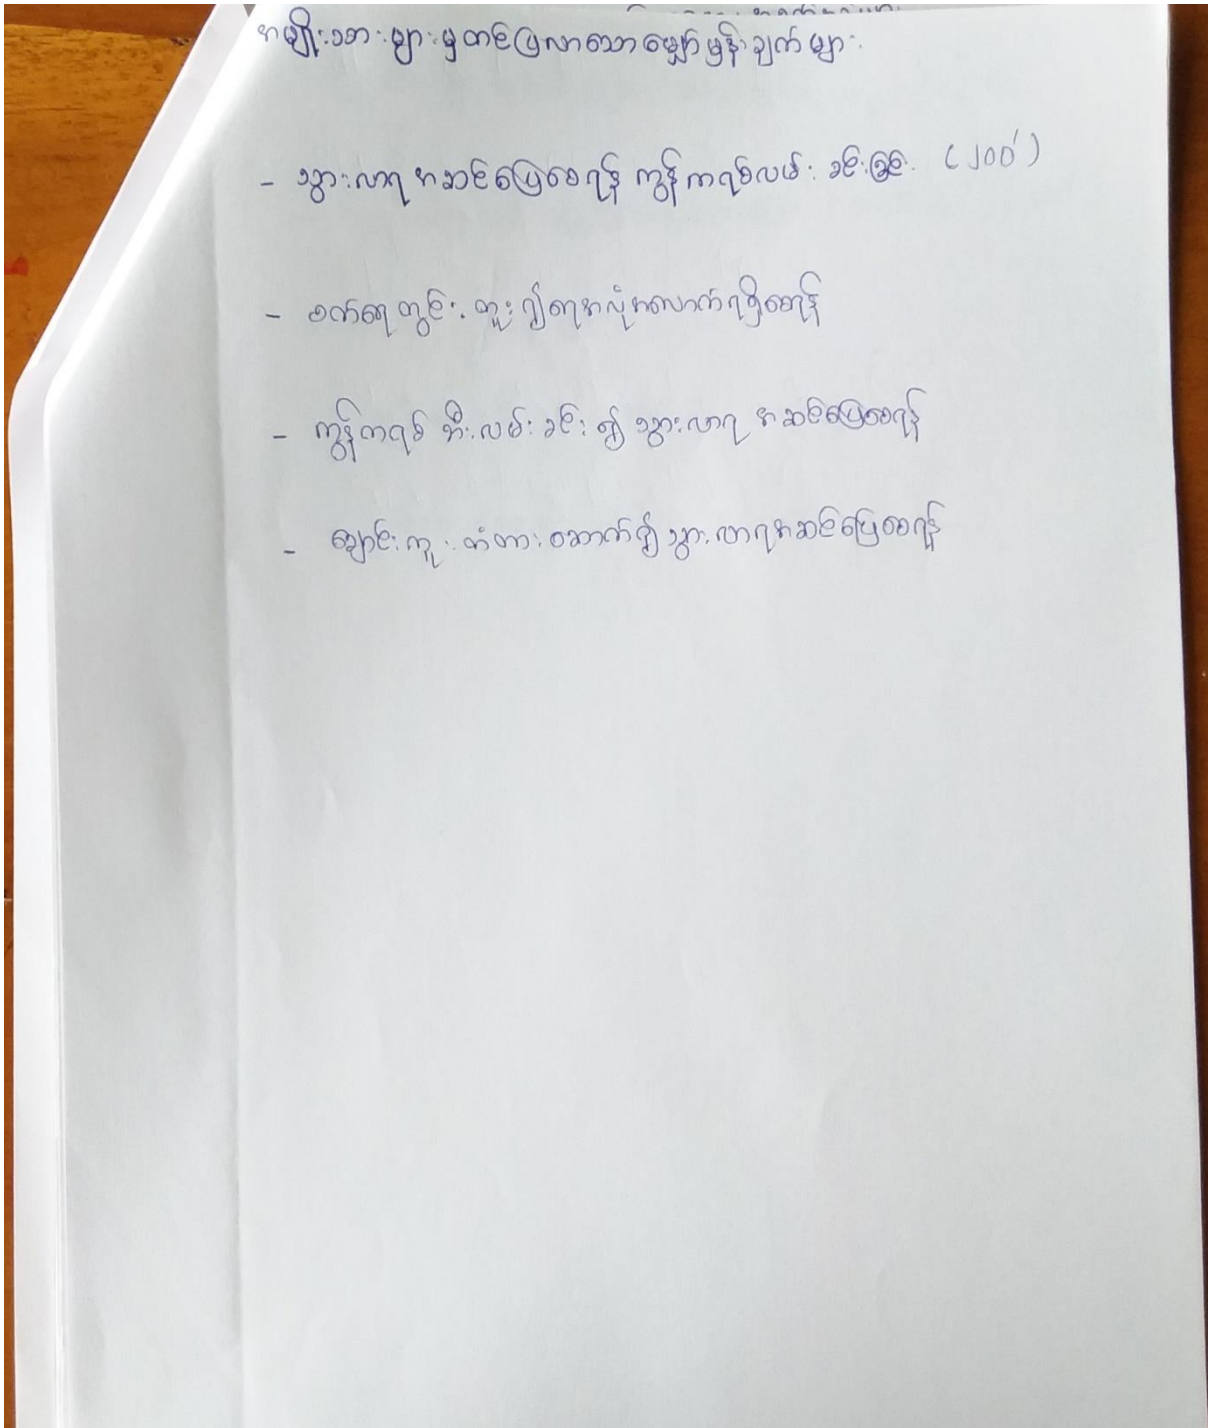 အမျိုးသားများမှတင်ပြလာသောမျှော်မှန်းချက်များ
- သွားလာရအဆင်ပြေစေရန် ကွန်ကရစ်လမ်းခင်းခြင်း (၂၀၀')
- စက်ရေတွင်းတူး၍ရေအလုံအလောက်ရရှိစေရန်
- ကွန်ကရစ် တီးလမ်းခင်း၍ သွားလာရ အဆင်ပြေစေရန်
- ချောင်းကူးတံတားဆောက်၍ သွားလာရအဆင်ပြေစေရန်